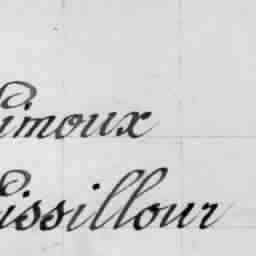 Limoux
Lissillour